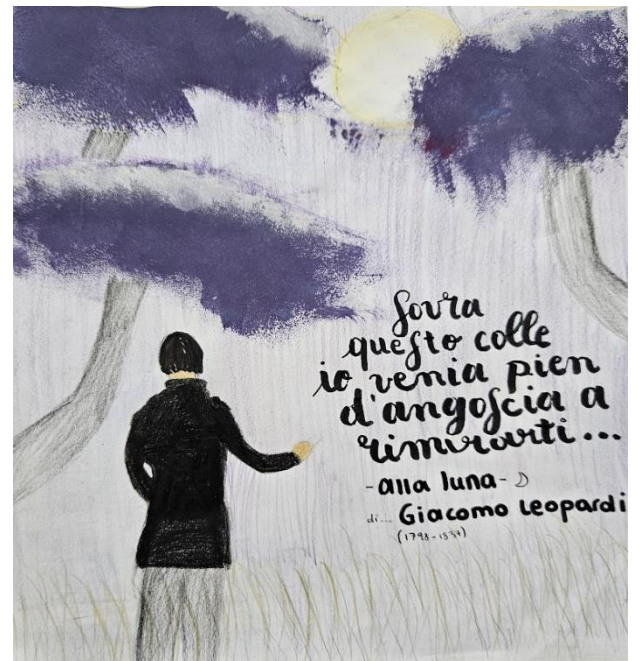 sovra
questo colle
io venia pien
d'angoscia a
rimirarti...
-alla luna-
di... Giacomo Leopardi
(1798-1837)